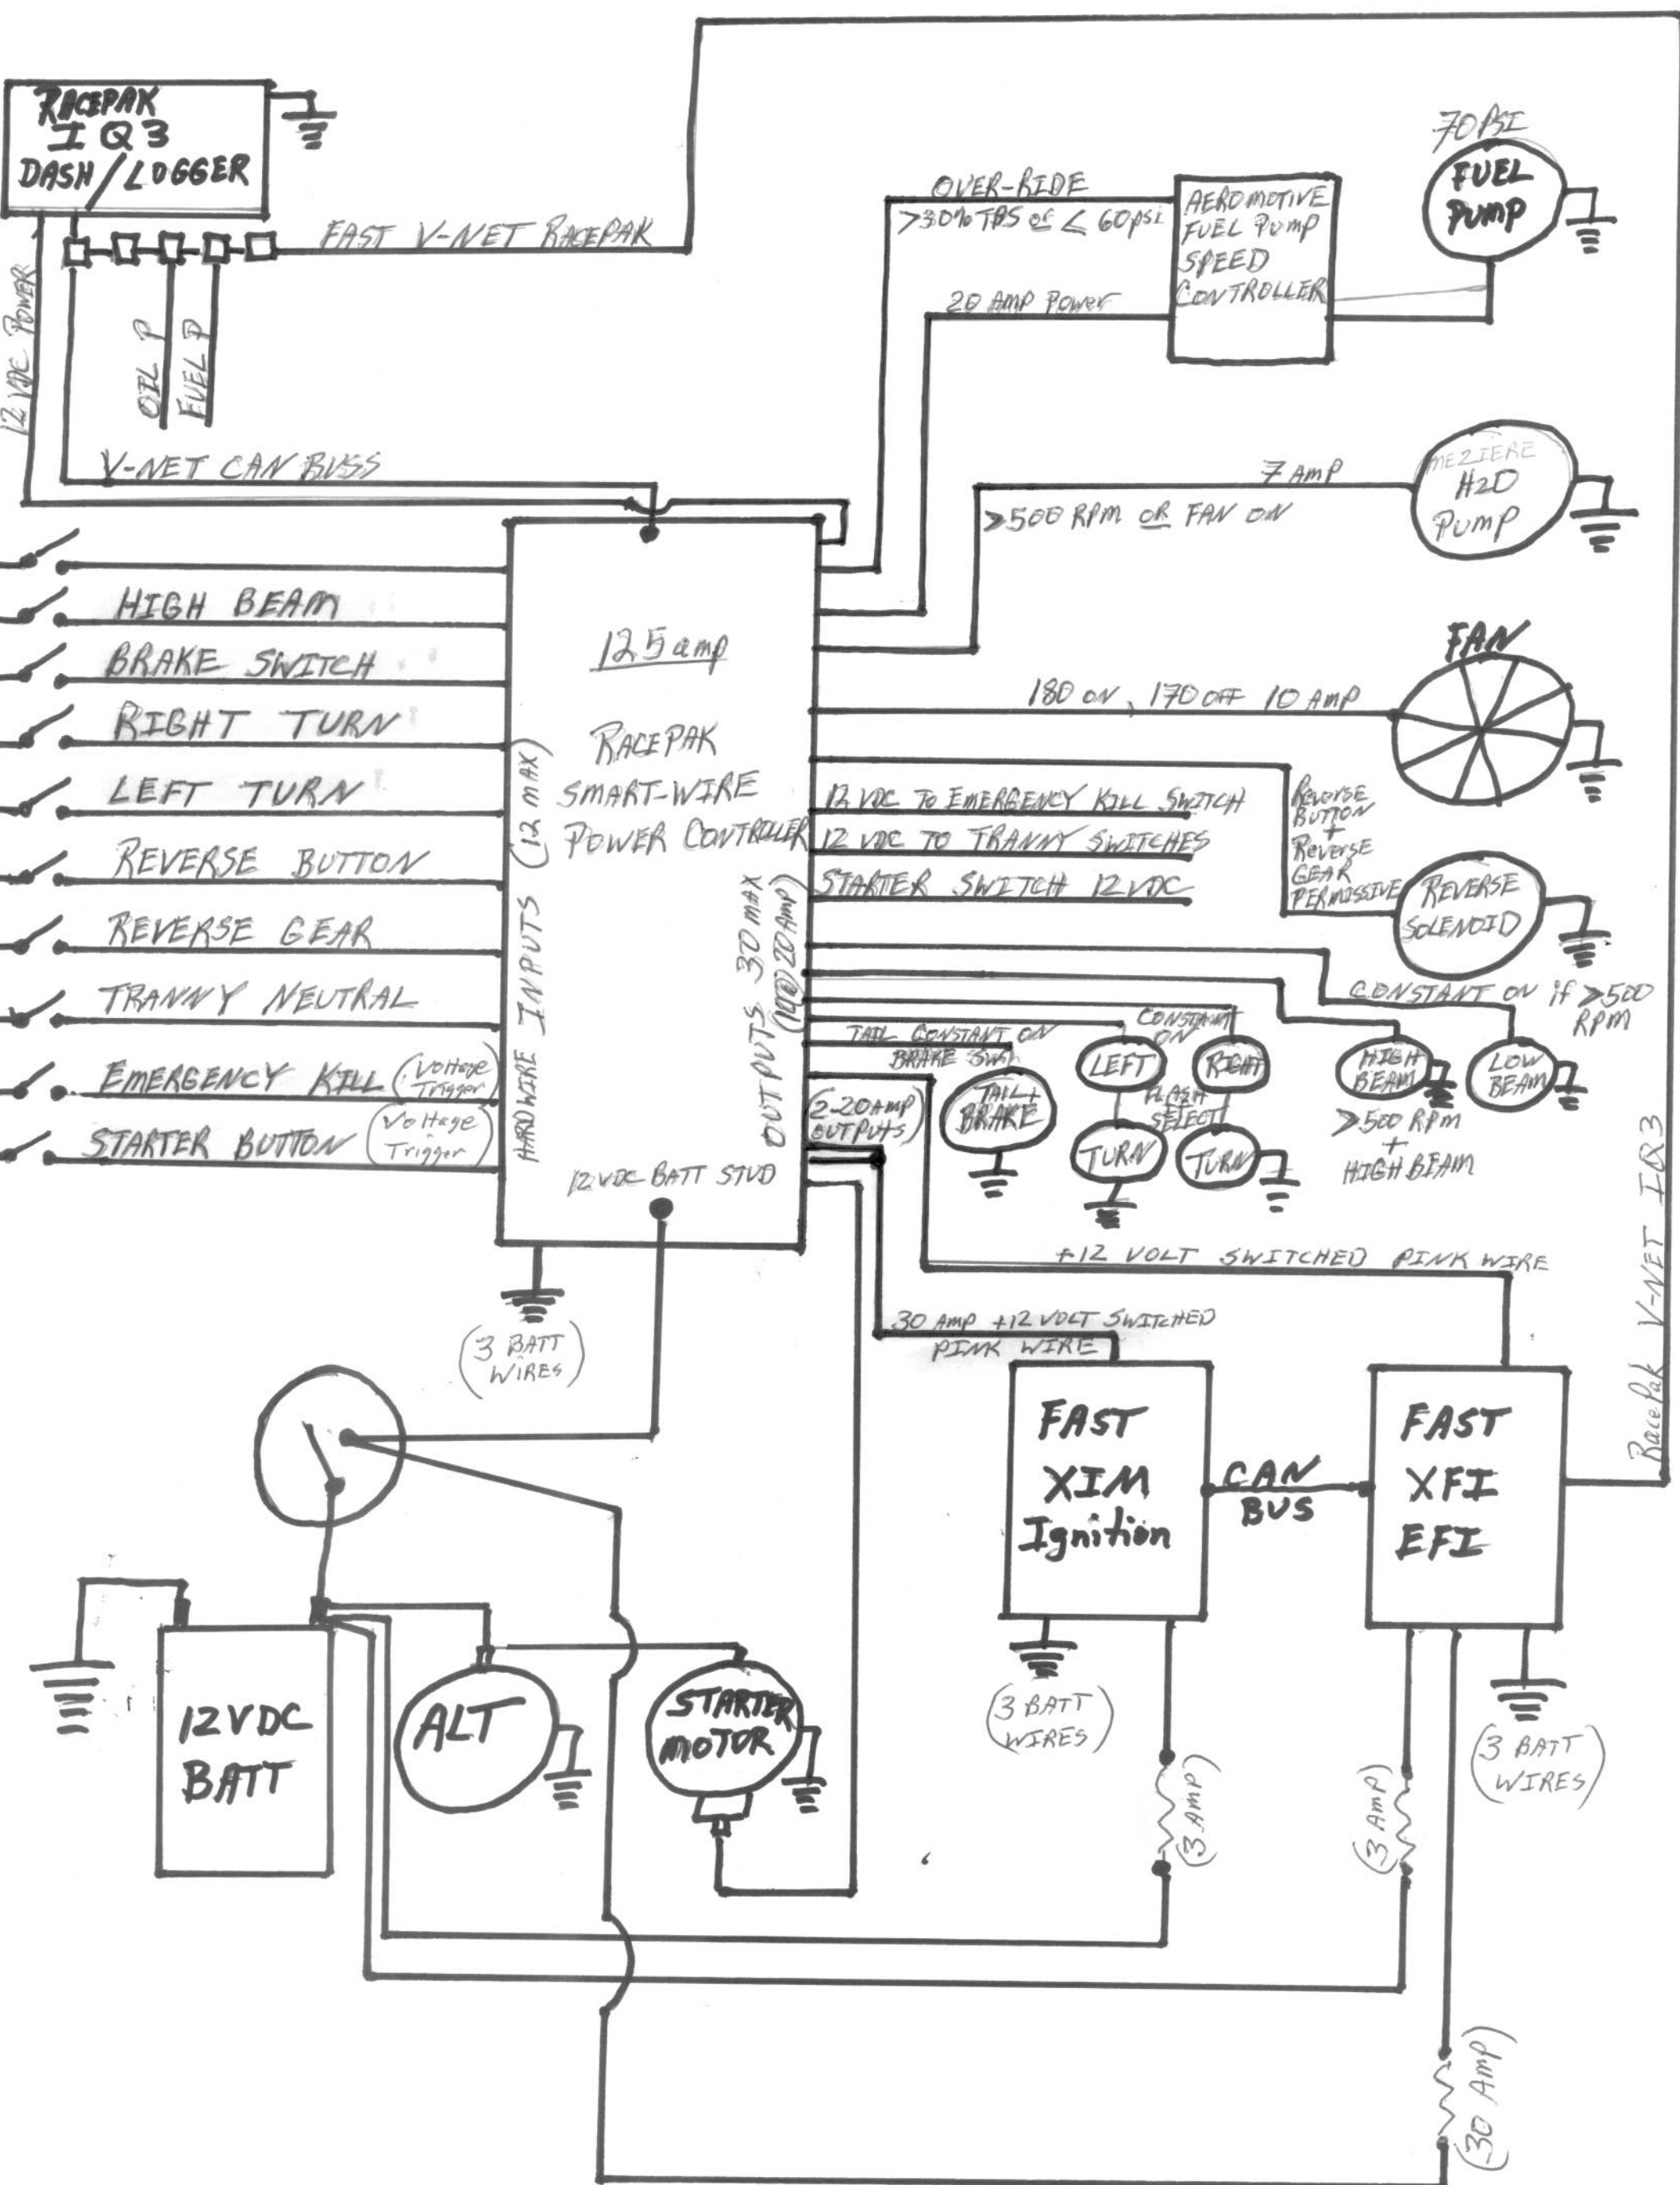 RACEPAK
IQ3
DASH/LOGGER
FAST V-NET RACEPAK
12 VDC POWER
OIL P
FUEL P
V-NET CAN BUSS
OVER-RIDE
>30% TPS or < 60psi
20 AMP Power
AEROMOTIVE
FUEL PUMP
SPEED
CONTROLLER
70 PSI
FUEL
PUMP
7 AMP
>500 RPM OR FAN ON
MEZIERE
H2O
PUMP
FAN
180 ON, 170 OFF 10 AMP
HIGH BEAM
BRAKE SWITCH
RIGHT TURN
LEFT TURN
REVERSE BUTTON
REVERSE GEAR
TRANNY NEUTRAL
EMERGENCY KILL (Voltage
Trigger)
STARTER BUTTON (Voltage
Trigger)
HARDWIRE INPUTS (12 MAX)
125 amp
RACEPAK
SMART-WIRE
POWER CONTROLLER
OUTPUTS 30 MAX
(10@20AMP)
12 VDC BATT STUD
12 VDC TO EMERGENCY KILL SWITCH
12 VDC TO TRANNY SWITCHES
STARTER SWITCH 12VDC
Reverse
BUTTON
+
Reverse
GEAR
PERMISSIVE
REVERSE
SOLENOID
CONSTANT ON if >500
RPM
CONSTANT
ON
TAIL CONSTANT ON
BRAKE SW
TAIL+
BRAKE
LEFT
RIGHT
FLASH
SELECT
TURN
TURN
HIGH
BEAM
LOW
BEAM
>500 RPM
+
HIGH BEAM
(2-20AMP
OUTPUTS)
+12 VOLT SWITCHED PINK WIRE
30 AMP +12 VOLT SWITCHED
PINK WIRE
(3 BATT
WIRES)
FAST
XIM
Ignition
CAN
BUS
FAST
XFI
EFI
RacePak V-NET IQ3
12VDC
BATT
ALT
STARTER
MOTOR
(3 BATT
WIRES)
(3 AMP)
(3 AMP)
(3 BATT
WIRES)
(30 AMP)